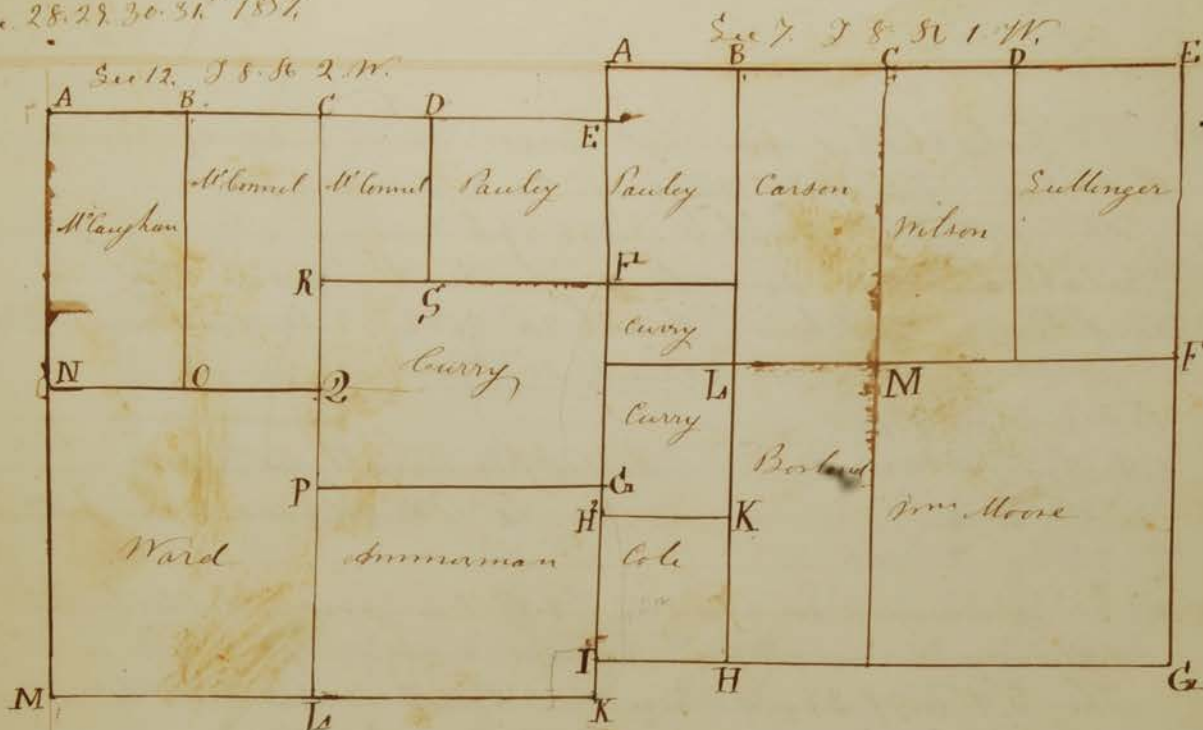 28. 29. 30. 31. 1857.
Sec 7. T 8. R 1. W.
Sec 12. T 8. R 2. W.
A B C D E
A B C D E
McCaughan McConnel McConnel Pauley Pauley Carson Wilson Sullinger
R S F
Curry
Curry
N O Q L M F
Curry
P G
H K
Borland
Wm Moore
Ward Ammerman Cole
I H G
M L K